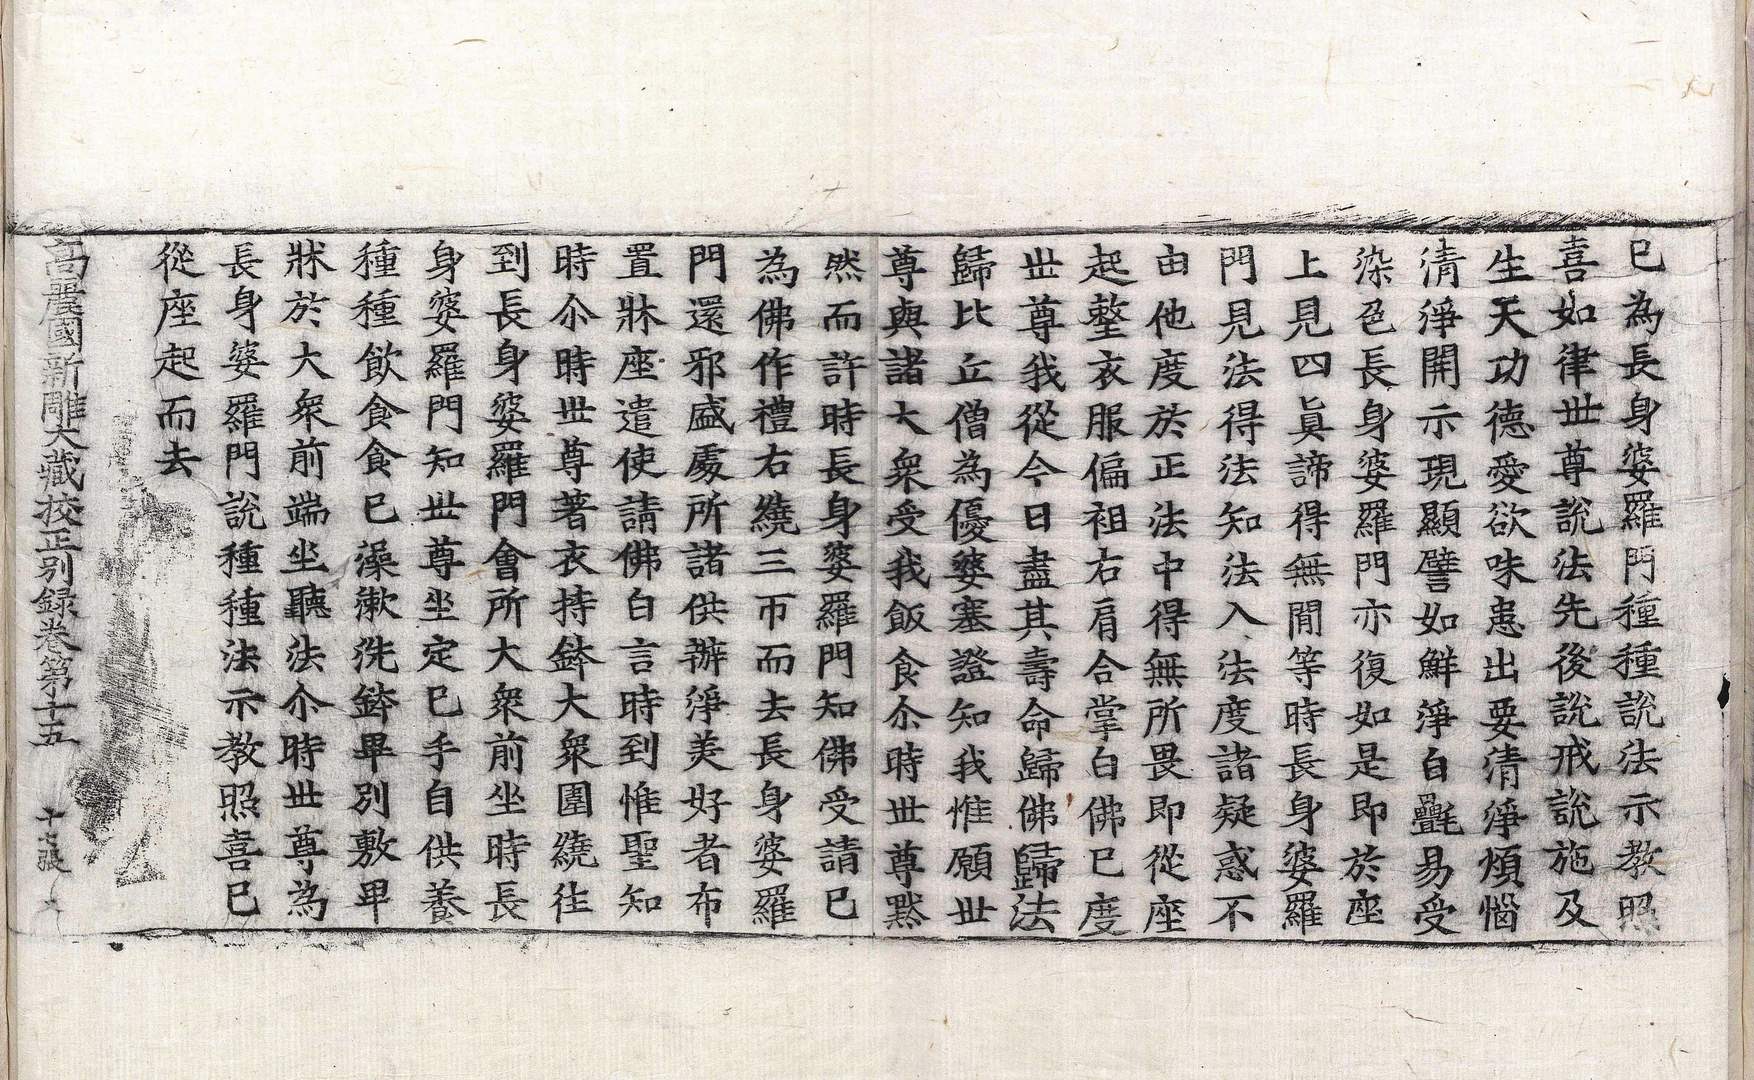 已為長身婆羅門種種說法示教照
喜如律世尊說法先後說戒說施及
生天功德愛欲味患出要清淨煩惱
清淨開示現顯譬如鮮淨白㲲易受
染色長身婆羅門亦復如是即於座
上見四眞諦得無間等時長身婆羅
門見法得法知法入法度諸疑惑不
由他度於正法中得無所畏即從座
起整衣服偏袒右肩合掌白佛已度
丗尊我從今日盡其壽命歸佛歸法
歸比丘僧為優婆塞證知我惟願丗
尊與諸大衆受我飯食尒時丗尊默
然而許時長身婆羅門知佛受請已
為佛作禮右繞三帀而去長身婆羅
門還邪盛處所諸供辦淨美好者布
置牀座遣使請佛白言時到惟聖知
時尒時丗尊著衣持鉢大衆圍繞往
到長身婆羅門會所大衆前坐時長
身婆羅門知丗尊坐定已手自供養
種種飲食食已澡漱洗鉢畢別敷卑
牀於大衆前端坐聽法尒時丗尊為
長身婆羅門說種種法示教照喜已
從座起而去
高麗國新雕大藏校正別録卷第十五 十七張